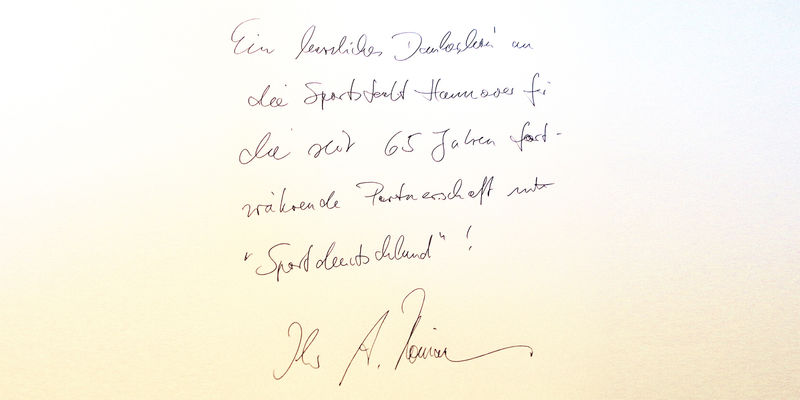 Ein herzliches Dankeschön an
die Sportstadt Hannover für
die seit 65 Jahren fort-
währende Partnerschaft mit
"Sportdeutschland"!
Ihr A.